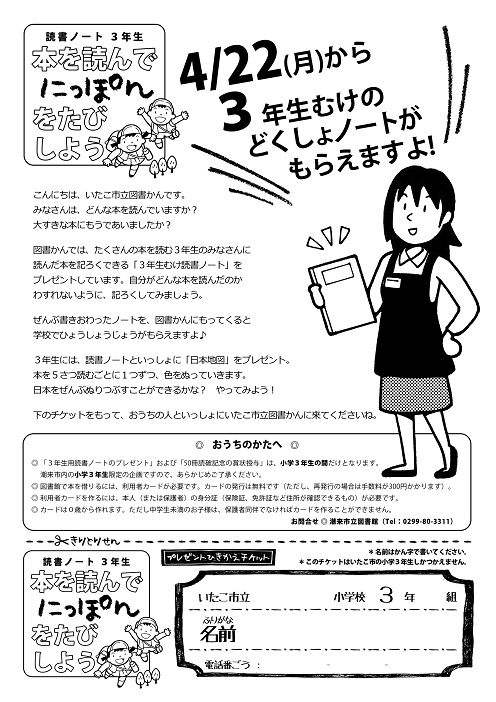 読書ノート 3年生
本を読んで
にっぽん
をたび
しよう
4/22(月)から
3年生むけの
どくしょノートが
もらえますよ!
こんにちは、いたこ市立図書かんです。
みなさんは、どんな本を読んでいますか?
大すきな本にもうであいましたか?
図書かんでは、たくさんの本を読む3年生のみなさんに
読んだ本を記ろくできる「3年生むけ読書ノート」を
プレゼントしています。自分がどんな本を読んだのか
わすれないように、記ろくしてみましょう。
ぜんぶ書きおわったノートを、図書かんにもってくると
学校でひょうしょうじょうがもらえますよ♪
3年生には、読書ノートといっしょに「日本地図」をプレゼント。
本を5さつ読むごとに1つずつ、色をぬっていきます。
日本をぜんぶぬりつぶすことができるかな? やってみよう!
下のチケットをもって、おうちの人といっしょにいたこ市立図書かんに来てくださいね。
◎ おうちのかたへ ◎
◎「3年生用読書ノートのプレゼント」および「50冊読破記念の賞状授与」は、小学3年生の間だけとなります。
潮来市内の小学3年生限定の企画ですので、あらかじめご了承ください。
◎図書館で本を借りるには、利用者カードが必要です。カードの発行は無料です(ただし、再発行の場合は手数料が300円かかります)。
◎利用者カードを作るには、本人(または保護者)の身分証(保険証、免許証など住所が確認できるもの)が必要です。
◎カードは0歳から作れます。ただし中学生未満のお子様は、保護者同伴でなければカードを作ることができません。
お問合せ◎潮来市立図書館(Tel:0299-80-3311)
きりとりせん
読書ノート 3年生
本を読んで
にっぽん
をたび
しよう
プレゼントひきかえチケット
*名前はかん字で書いてください。
*このチケットはいたこ市の小学3年生しかつかえません。
いたこ市立 小学校 3年 組
ふりがな
名前
電話番ごう: - -